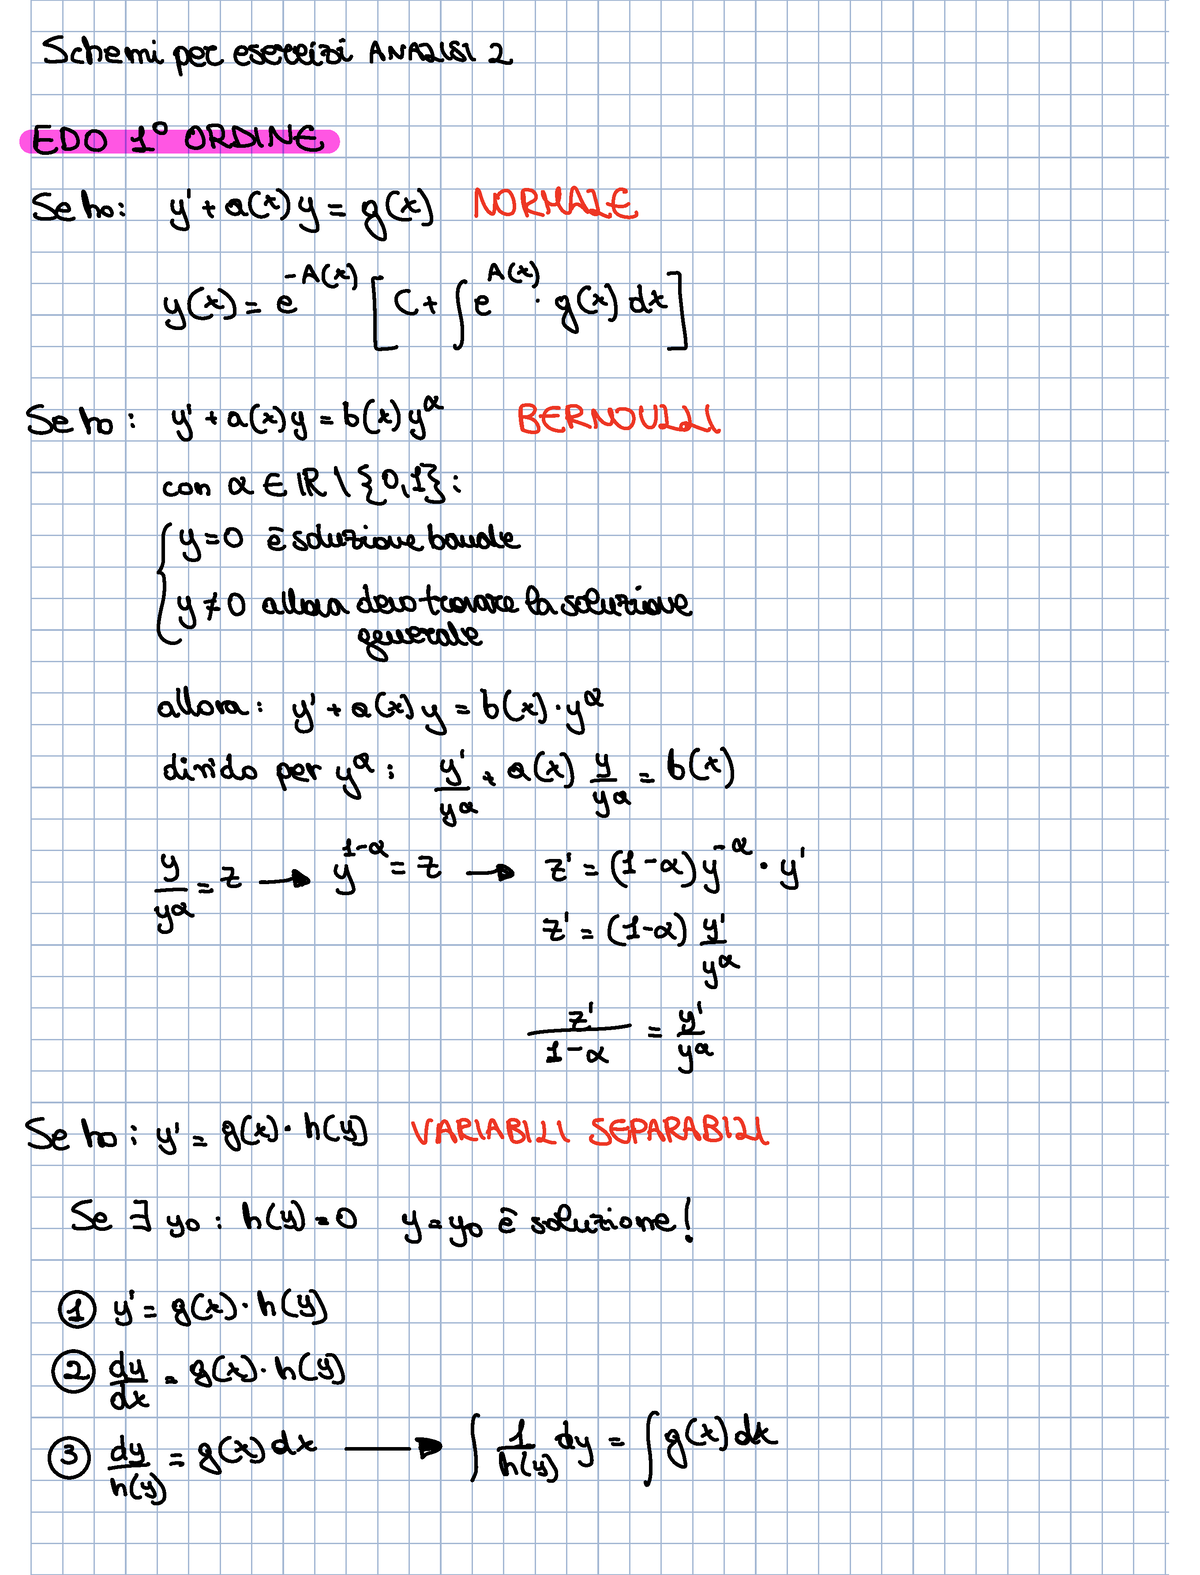 Schemi per esercizi ANALISI 2
EDO 1° ORDINE
Se ho: y' + a(x) y = g(x) NORMALE
y(x) = e^{-A(x)} [ C + ∫ e^{A(x)} · g(x) dx ]
Se ho: y' + a(x) y = b(x) y^α BERNOULLI
con α ∈ ℝ \ {0,1}:
{ y=0 è soluzione banale
y≠0 allora devo trovare la soluzione
generale
allora: y' + a(x) y = b(x) · y^α
divido per y^α: y'/y^α + a(x) y/y^α = b(x)
y/y^α = z → y^{1-α} = z → z' = (1-α) y^{-α} · y'
z' = (1-α) y'/y^α
z'/(1-α) = y'/y^α
Se ho: y' = g(x) · h(y) VARIABILI SEPARABILI
Se ∃ y₀ : h(y) = 0 y = y₀ è soluzione!
① y' = g(x) · h(y)
② dy/dx = g(x) · h(y)
③ dy/h(y) = g(x) dx → ∫ 1/h(y) dy = ∫ g(x) dx